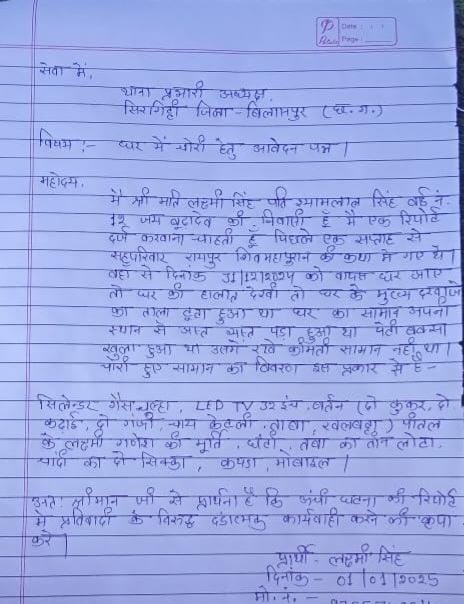 Date :
Page :
सेवा में,
थाना प्रभारी अध्यक्ष,
सिरगिट्टी जिला - बिलासपुर (छ.ग.)
विषय :- घर में चोरी हेतु आवेदन पत्र |
महोदय,
मै श्री मति लक्ष्मी सिंह पति श्यामलाल सिंह वार्ड नं.
12 जय बूढ़ादेव की निवासी हूँ मै एक रिपोर्ट
दर्ज करवाना चाहती हूँ पिछले एक सप्ताह से
सहपरिवार रायपुर शिवमहापुरान की कथा मे गए थे |
वहा से दिनांक 31/12/2024 को वापस घर आए
तो घर की हालात देखी तो घर के मुख्य दरवाजे
का ताला टूटा हुआ था घर का सामान अपनी
स्थान से अस्त व्यस्त पड़ा हुआ था पेटी बक्सा
खुला हुआ था उसमे रखे कीमती सामान नहीं था |
चोरी हुए सामान का विवरण इस प्रकार से है -
सिलेन्डर गैस चूल्हा, LED TV 32 इंच, बर्तन (दो कुकर, दो
कढ़ाई, दो गंजी, चाय केटली, तावा, खलबट्टा) पीतल
के लक्ष्मी गणेश की मूर्ति, घंटी, तांबा का तीन लोटा,
चांदी का दो सिक्का, कपड़ा, मोबाइल |
अतः श्रीमान जी से प्रार्थना है कि घटना की रिपोर्ट
मे प्रतिवादी के विरुद्ध दंडात्मक कार्यवाही करने की कृपा
करे |
प्रार्थी - लक्ष्मी सिंह
दिनांक - 01/01/2025
मो. नं. -